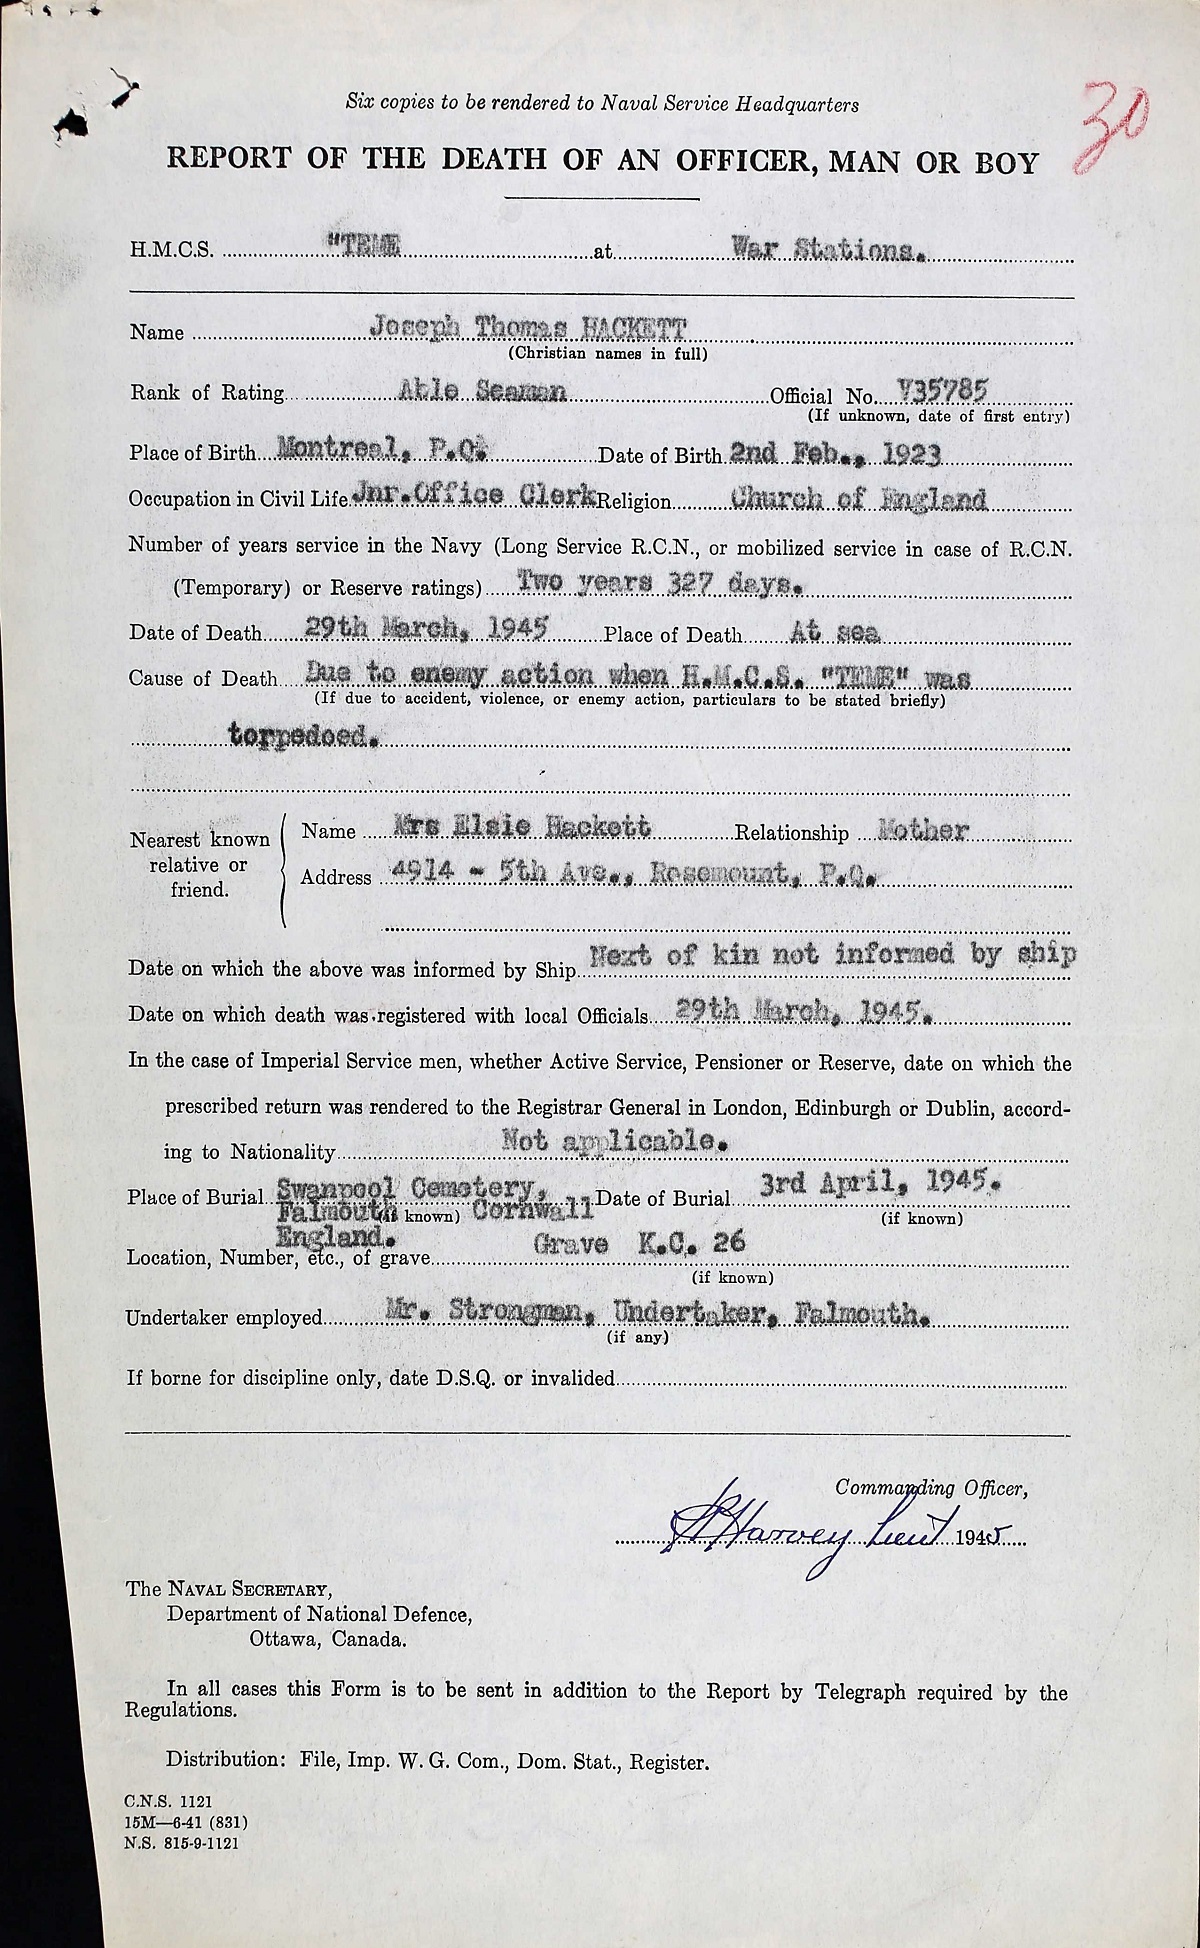 30
Six copies to be rendered to Naval Service Headquarters
REPORT OF THE DEATH OF AN OFFICER, MAN OR BOY
H.M.C.S. "TEME at War Stations.
Name Joseph Thomas HACKETT
(Christian names in full)
Rank of Rating Able Seaman Official No. V35785
(If unknown, date of first entry)
Place of Birth Montreal, P.Q. Date of Birth 2nd Feb., 1923
Occupation in Civil Life Jnr.Office Clerk Religion Church of England
Number of years service in the Navy (Long Service R.C.N., or mobilized service in case of R.C.N.
(Temporary) or Reserve ratings) Two years 327 days.
Date of Death 29th March, 1945 Place of Death At sea
Cause of Death Due to enemy action when H.M.C.S. "TEME" was
(If due to accident, violence, or enemy action, particulars to be stated briefly)
torpedoed.
Nearest known relative or friend.
Name Mrs Elsie Hackett Relationship Mother
Address 4914 - 5th Ave., Rosemount, P.Q.
Date on which the above was informed by Ship Next of kin not informed by ship
Date on which death was registered with local Officials 29th March, 1945.
In the case of Imperial Service men, whether Active Service, Pensioner or Reserve, date on which the
prescribed return was rendered to the Registrar General in London, Edinburgh or Dublin, accord-
ing to Nationality Not applicable.
Place of Burial Swanpool Cemetery, Date of Burial 3rd April, 1945.
Falmouth (if known) Cornwall (if known)
England.
Location, Number, etc., of grave Grave K.C. 26
(if known)
Undertaker employed Mr. Strongman, Undertaker, Falmouth.
(if any)
If borne for discipline only, date D.S.Q. or invalided
Commanding Officer,
Harvey Lieut 1945
The NAVAL SECRETARY,
Department of National Defence,
Ottawa, Canada.
In all cases this Form is to be sent in addition to the Report by Telegraph required by the
Regulations.
Distribution: File, Imp. W. G. Com., Dom. Stat., Register.
C.N.S. 1121
15M—6-41 (831)
N.S. 815-9-1121